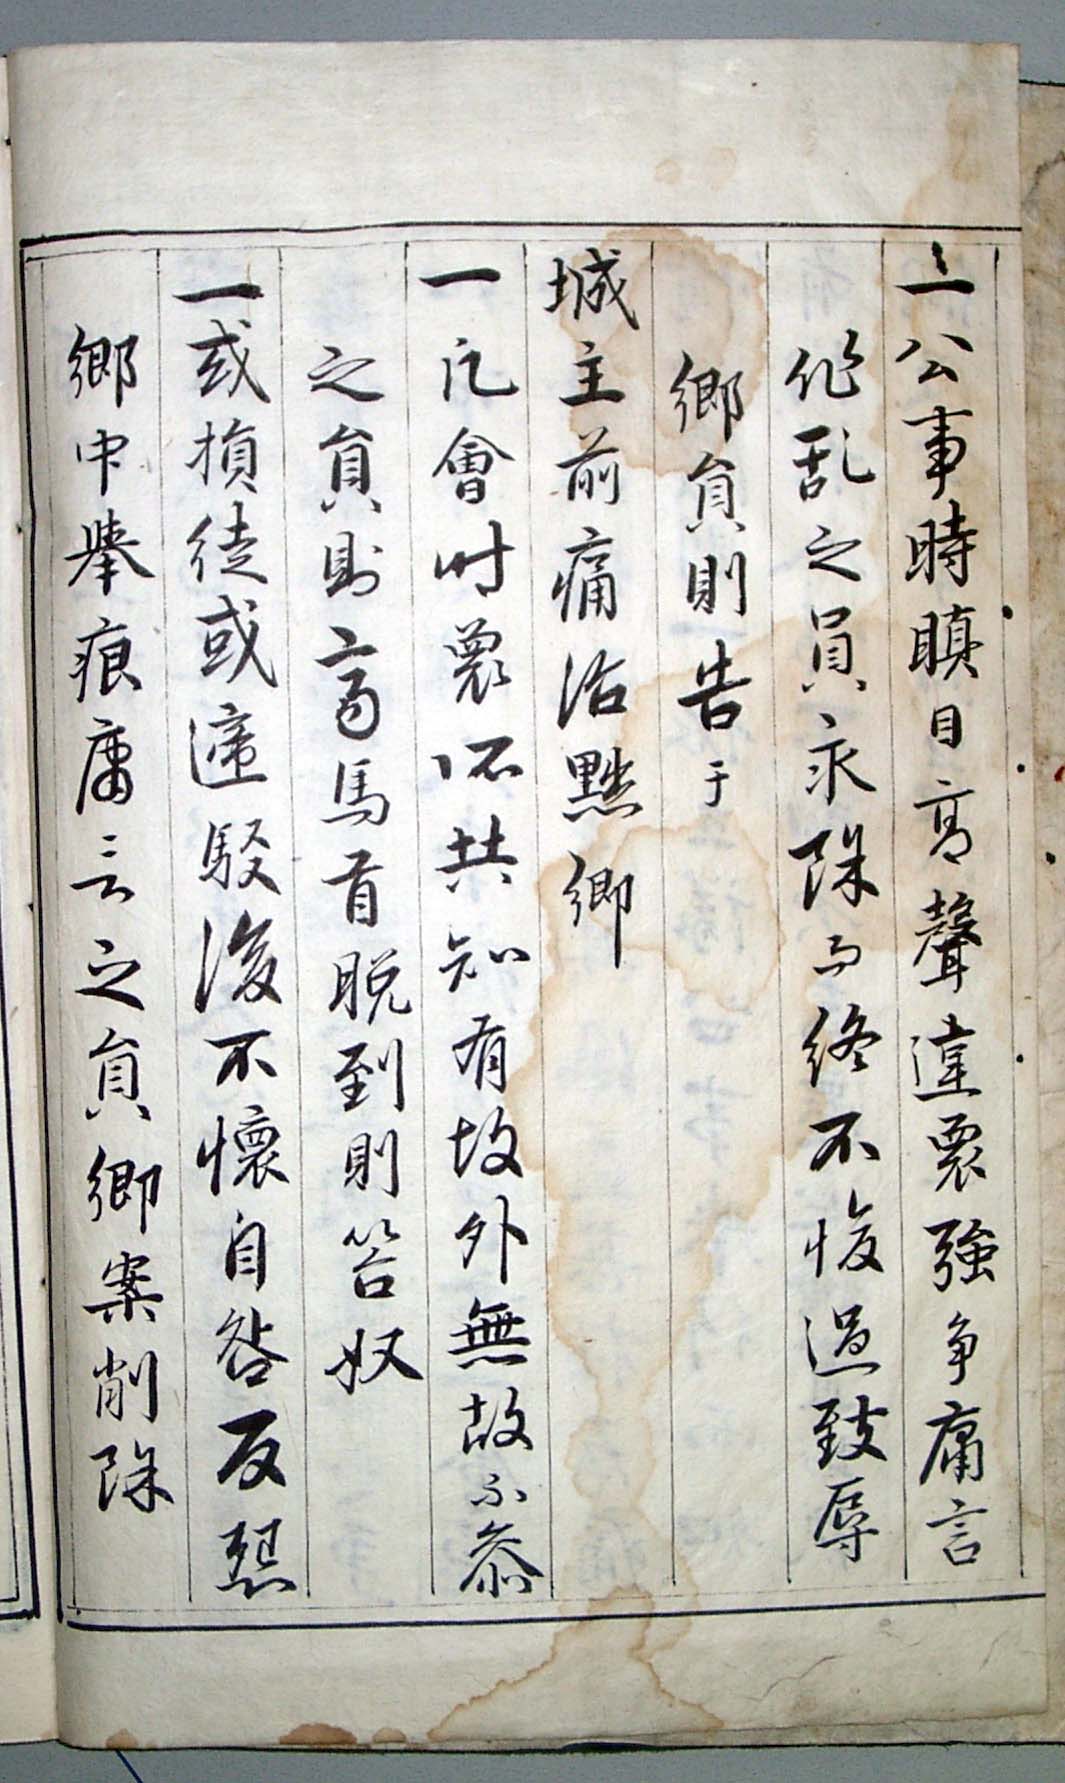 一公事時瞋目高聲違衆強争庸言
作乱之員永除而終不悛過致辱
鄕員則告于
城主前痛治黜鄕
一凡會时衆所共知有故外無故不叅
之員則高馬首脱到則笞奴
一或損徒或違駁後不懷自咎反惹
鄕中擧痕庸言之員鄕案削除